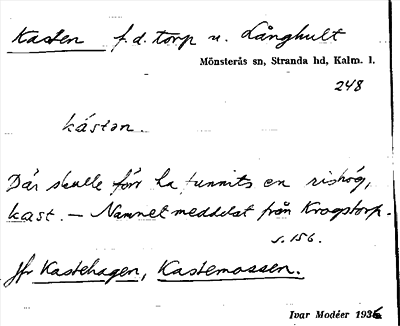 Kasten f.d. torp u. Långhult
Mönsterås sn, Stranda hd, Kalm. l.
248
kástən.
Där skulle förr ha funnits en rishög,
kast. — Namnet meddelat från Krogstorp.
s. 156.
Jfr Kastehagen, Kastemossen.
Ivar Modéer 1936